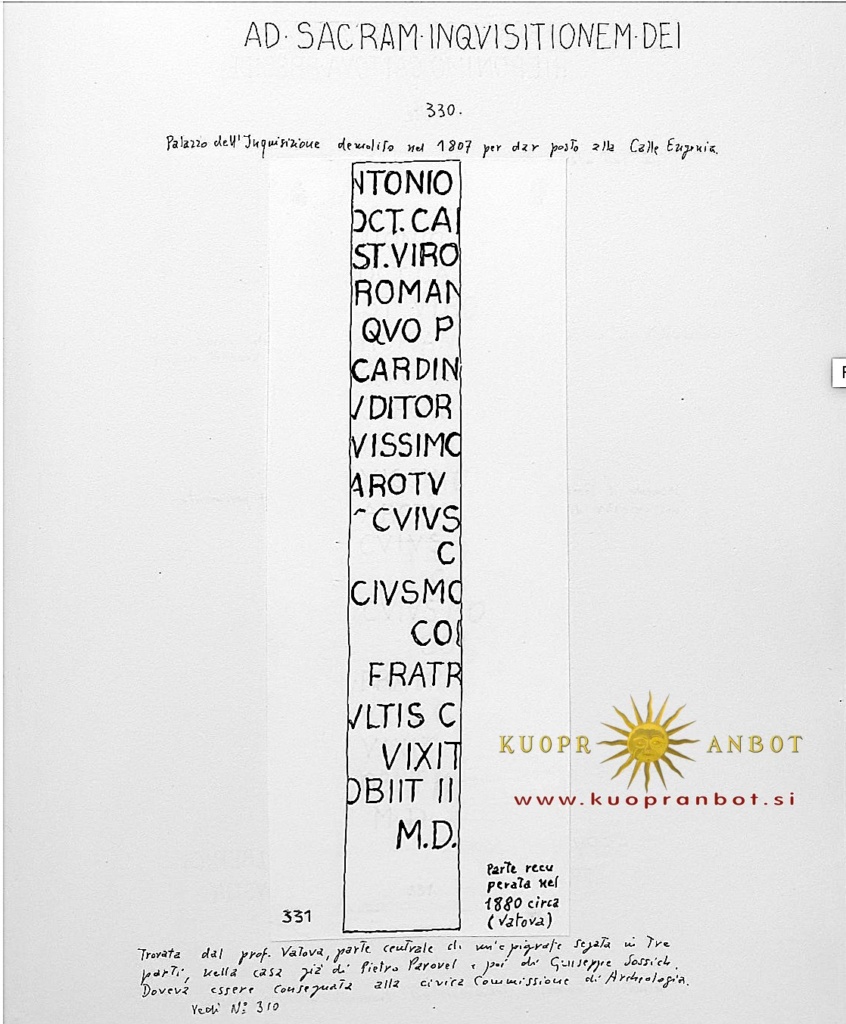 AD·SACRAM·INQVISITIONEM·DEI
330.
Palazzo dell'Inquisizione demolito nel 1807 per dar posto alla Calle Eugenia.
NTONIO
OCT.CAI
ST.VIRO
ROMAN
QVO P
CARDIN
VDITOR
VISSIMO
AROTV
CVIVS
C
CIVSMO
CO
FRATR
VLTIS C
VIXIT
OBIIT II
M.D.
KUOPR ANBOT
www.kuopranbot.si
Parte recu
perata nel
1880 circa
(Vatova)
331
Trovata dal prof. Vatova, parte centrale di un'epigrafe segata in tre
parti, nella casa già di Pietro Parovel e poi di Giuseppe Sossich.
Doveva essere consegnata alla civica Commissione di Archeologia.
Vedi N: 310